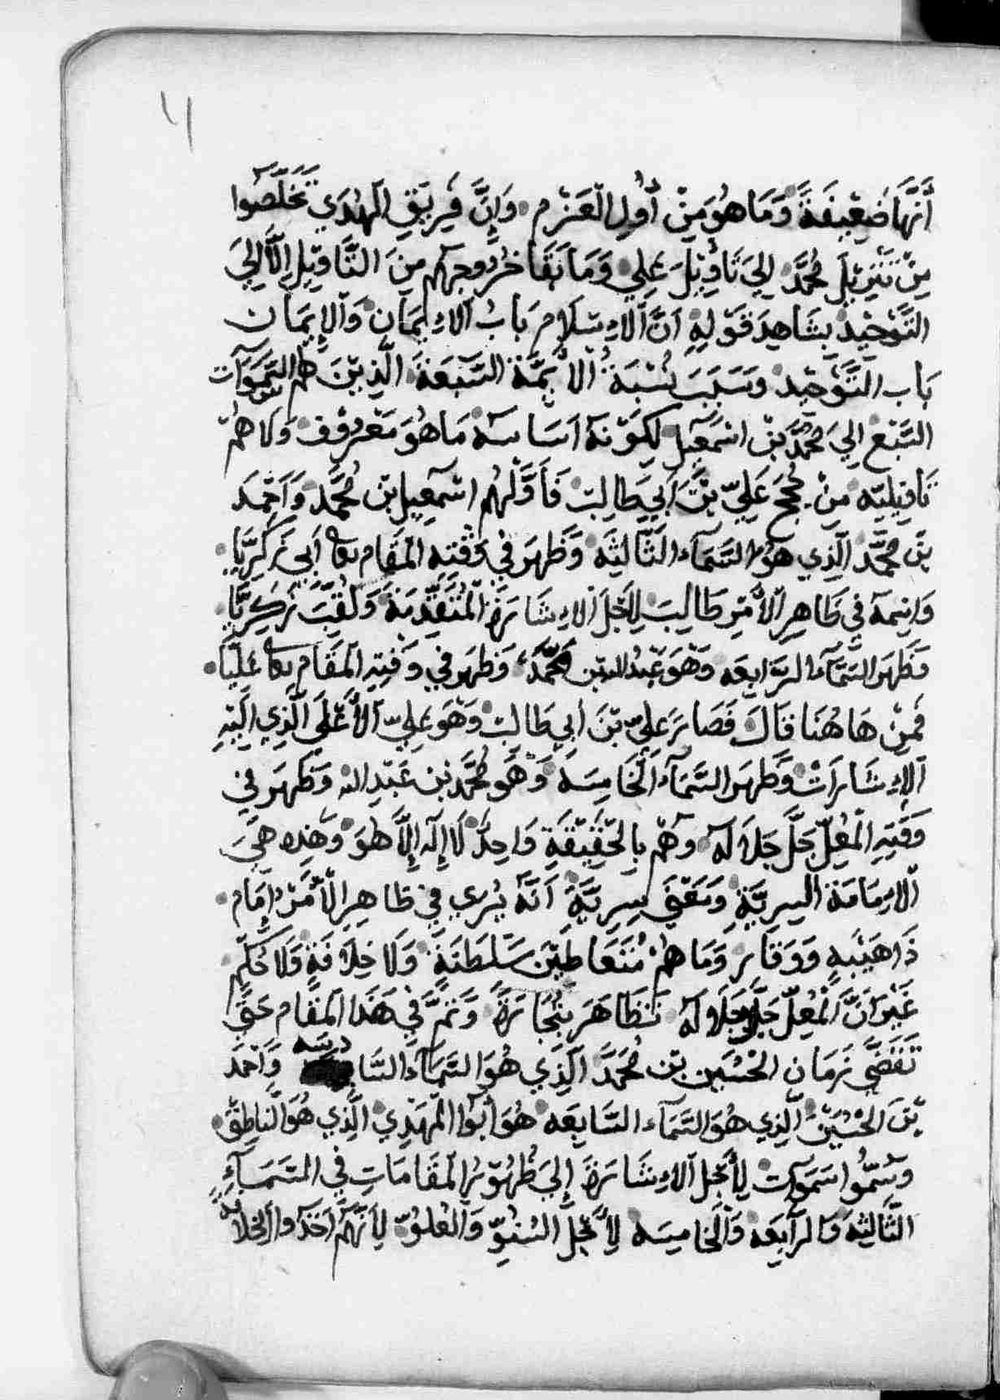 أَنَّهَا ضَعِيفَةً وَمَا هُوَ مِنْ أُولِ الْعَزْم وَإِنَّ فَرِيقِ الْهُدَي تَخَلَّصُوا
مِنْ تَنْزِيْل مُحَمَّد الِيَ تَأْوِيْلَ عَلِي وَمَا بَقَا خُرُوجهم مِنَ التَّاوِيْلِ اِلاَّ الِيَ
التَّوْحِيْد بشَاهِدَ قَوْلِهِ اَنَّ الاِسْلَام بَابُ الاِيمَانِ وَالإِيمَان
بَاب التَّوْحِيْد وَسَبَبَ نِسْبَة الأَئِمَّة السَّبْعَة الَّذِيْنَ هُم السَّمَوَآت
السَّبْع الِيَ مُحَمَّد بْن اسْمَعِيل لكَوْنهُ اسَاسهُ مَا هُوَ مَعْرُوْف وَلَا هُمْ
تَاوِيْلِيّه مِنْ حُجَج عَلِيّ بْنَ أَبِي طَالِبْ فَأَوَّلهُم اسْمَعِيل بْن مُحَمَّد وَاَحْمَد
بنَ مُحَمَّد الَّذِي هوَ السَّمَآء الثَّالِثَه وَظَهرَ فِي وَقْتهِ المَقَام أبي زَكَرِيَّا
وَاسْمهُ فِي ظَاهِرِ الأَمْرِ طَالِبَ لِلاَجْل الاِشَارَةِ الْمُتَقَدِّمَة وَلُقِّبَ زَكَرِيَّا
وَظَهرَ السَّمَآء الرَّابِعَه وَهْوَ عَبْد اللّه بْن مُحَمَّد وَظهَرَ فِي وَقْتِهِ المَقَام عَلِيَّا
فَمِنْ هَا هُنَا قَالَ فَصَارَ عَلِيّ بْنَ أَبِي طَالِبْ وَهْوَ عَلِيّ الأَعْلَى الَّذِي الَيْهِ
الإِشَارَاتْ وَظَهرَ السَّمَآء الْخَامِسَه وَهَو مُحَمَّد بْن عَبْدِ اللّه وَظَهَرَ فِي
وَقْتِهِ الْمُعِلّ جَلَّ جَلَالهُ وهُم بِالْحَقِيْقَةِ وَاحِدٌ لَا إِلَه إِلاَّ هُوَ وَهَذِه هيَ
الاِمَامَة السِرِيَّةِ وَمَعْنَى سِرِيَّةً اَنَّهُ يُرَي فِي ظَاهِرِ الأَمْرِ اِمَام
ذَا هَيْبَه وَوَقَار وَمَا هُمْ مُتَعَاطَيْن سَلْطَنَةً وَلَا خِلَافَةٍ وَلَا حُكْم
غَيْرَ أَنَّ الْمُعِلّ جَلَّ جَلَالهُ تَظَاهَرَ بِتِجَارَةً وَتَمَّ فِي هَذَا المَقَام حَتَّى
تَقَضَّي زَمَان الْحُسَيْن بْن مُحَمَّد الَّذِي هُوَ السَّمَآء السَّادسه وَاَحْمَد
بْنَ الْحُسَيْن الَّذِي هُوَ السَّمَآء السَّابِعَه هُوَ أَبُوا الْمهْدِي الَّذِي هُوَ النَّاطِقْ
وَسُمُّوا سَمَوَآت لأَجْل الاِشَارَة إِلَى ظُهُوْرِ الْمَقَامَاتِ فِي السَّمَآء
الثَّالِثَه وَالرَّابِعَة وَالْخَامِسَه لِأَجْل السُّمُوِّ وَالْعُلُوّ لأَنَّهُم اَخَذُوا الْخلَافَهً